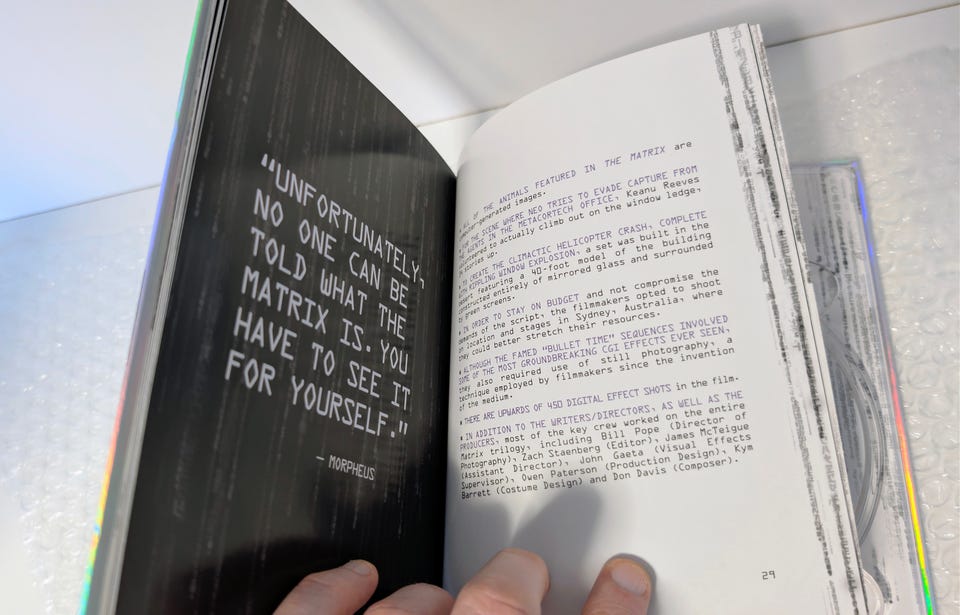 "UNFORTUNATELY,
NO ONE CAN BE
TOLD WHAT THE
MATRIX IS. YOU
HAVE TO SEE IT
FOR YOURSELF."
— MORPHEUS
OF THE ANIMALS FEATURED IN THE MATRIX are
-generated images.
THE SCENE WHERE NEO TRIES TO EVADE CAPTURE FROM
AGENTS IN THE METACORTECH OFFICE, Keanu Reeves
volunteered to actually climb out on the window ledge,
stories up.
TO CREATE THE CLIMACTIC HELICOPTER CRASH, COMPLETE
WITH RIPPLING WINDOW EXPLOSION, a set was built in the
desert featuring a 40-foot model of the building
constructed entirely of mirrored glass and surrounded
by green screens.
* IN ORDER TO STAY ON BUDGET and not compromise the
demands of the script, the filmmakers opted to shoot
on location and stages in Sydney, Australia, where
they could better stretch their resources.
* ALTHOUGH THE FAMED "BULLET TIME" SEQUENCES INVOLVED
SOME OF THE MOST GROUNDBREAKING CGI EFFECTS EVER SEEN,
they also required use of still photography, a
technique employed by filmmakers since the invention
of the medium.
* THERE ARE UPWARDS OF 450 DIGITAL EFFECT SHOTS in the film.
* IN ADDITION TO THE WRITERS/DIRECTORS, AS WELL AS THE
PRODUCERS, most of the key crew worked on the entire
Matrix trilogy, including Bill Pope (Director of
Photography), Zach Staenberg (Editor), James McTeigue
(Assistant Director), John Gaeta (Visual Effects
Supervisor), Owen Paterson (Production Design), Kym
Barrett (Costume Design) and Don Davis (Composer).
29